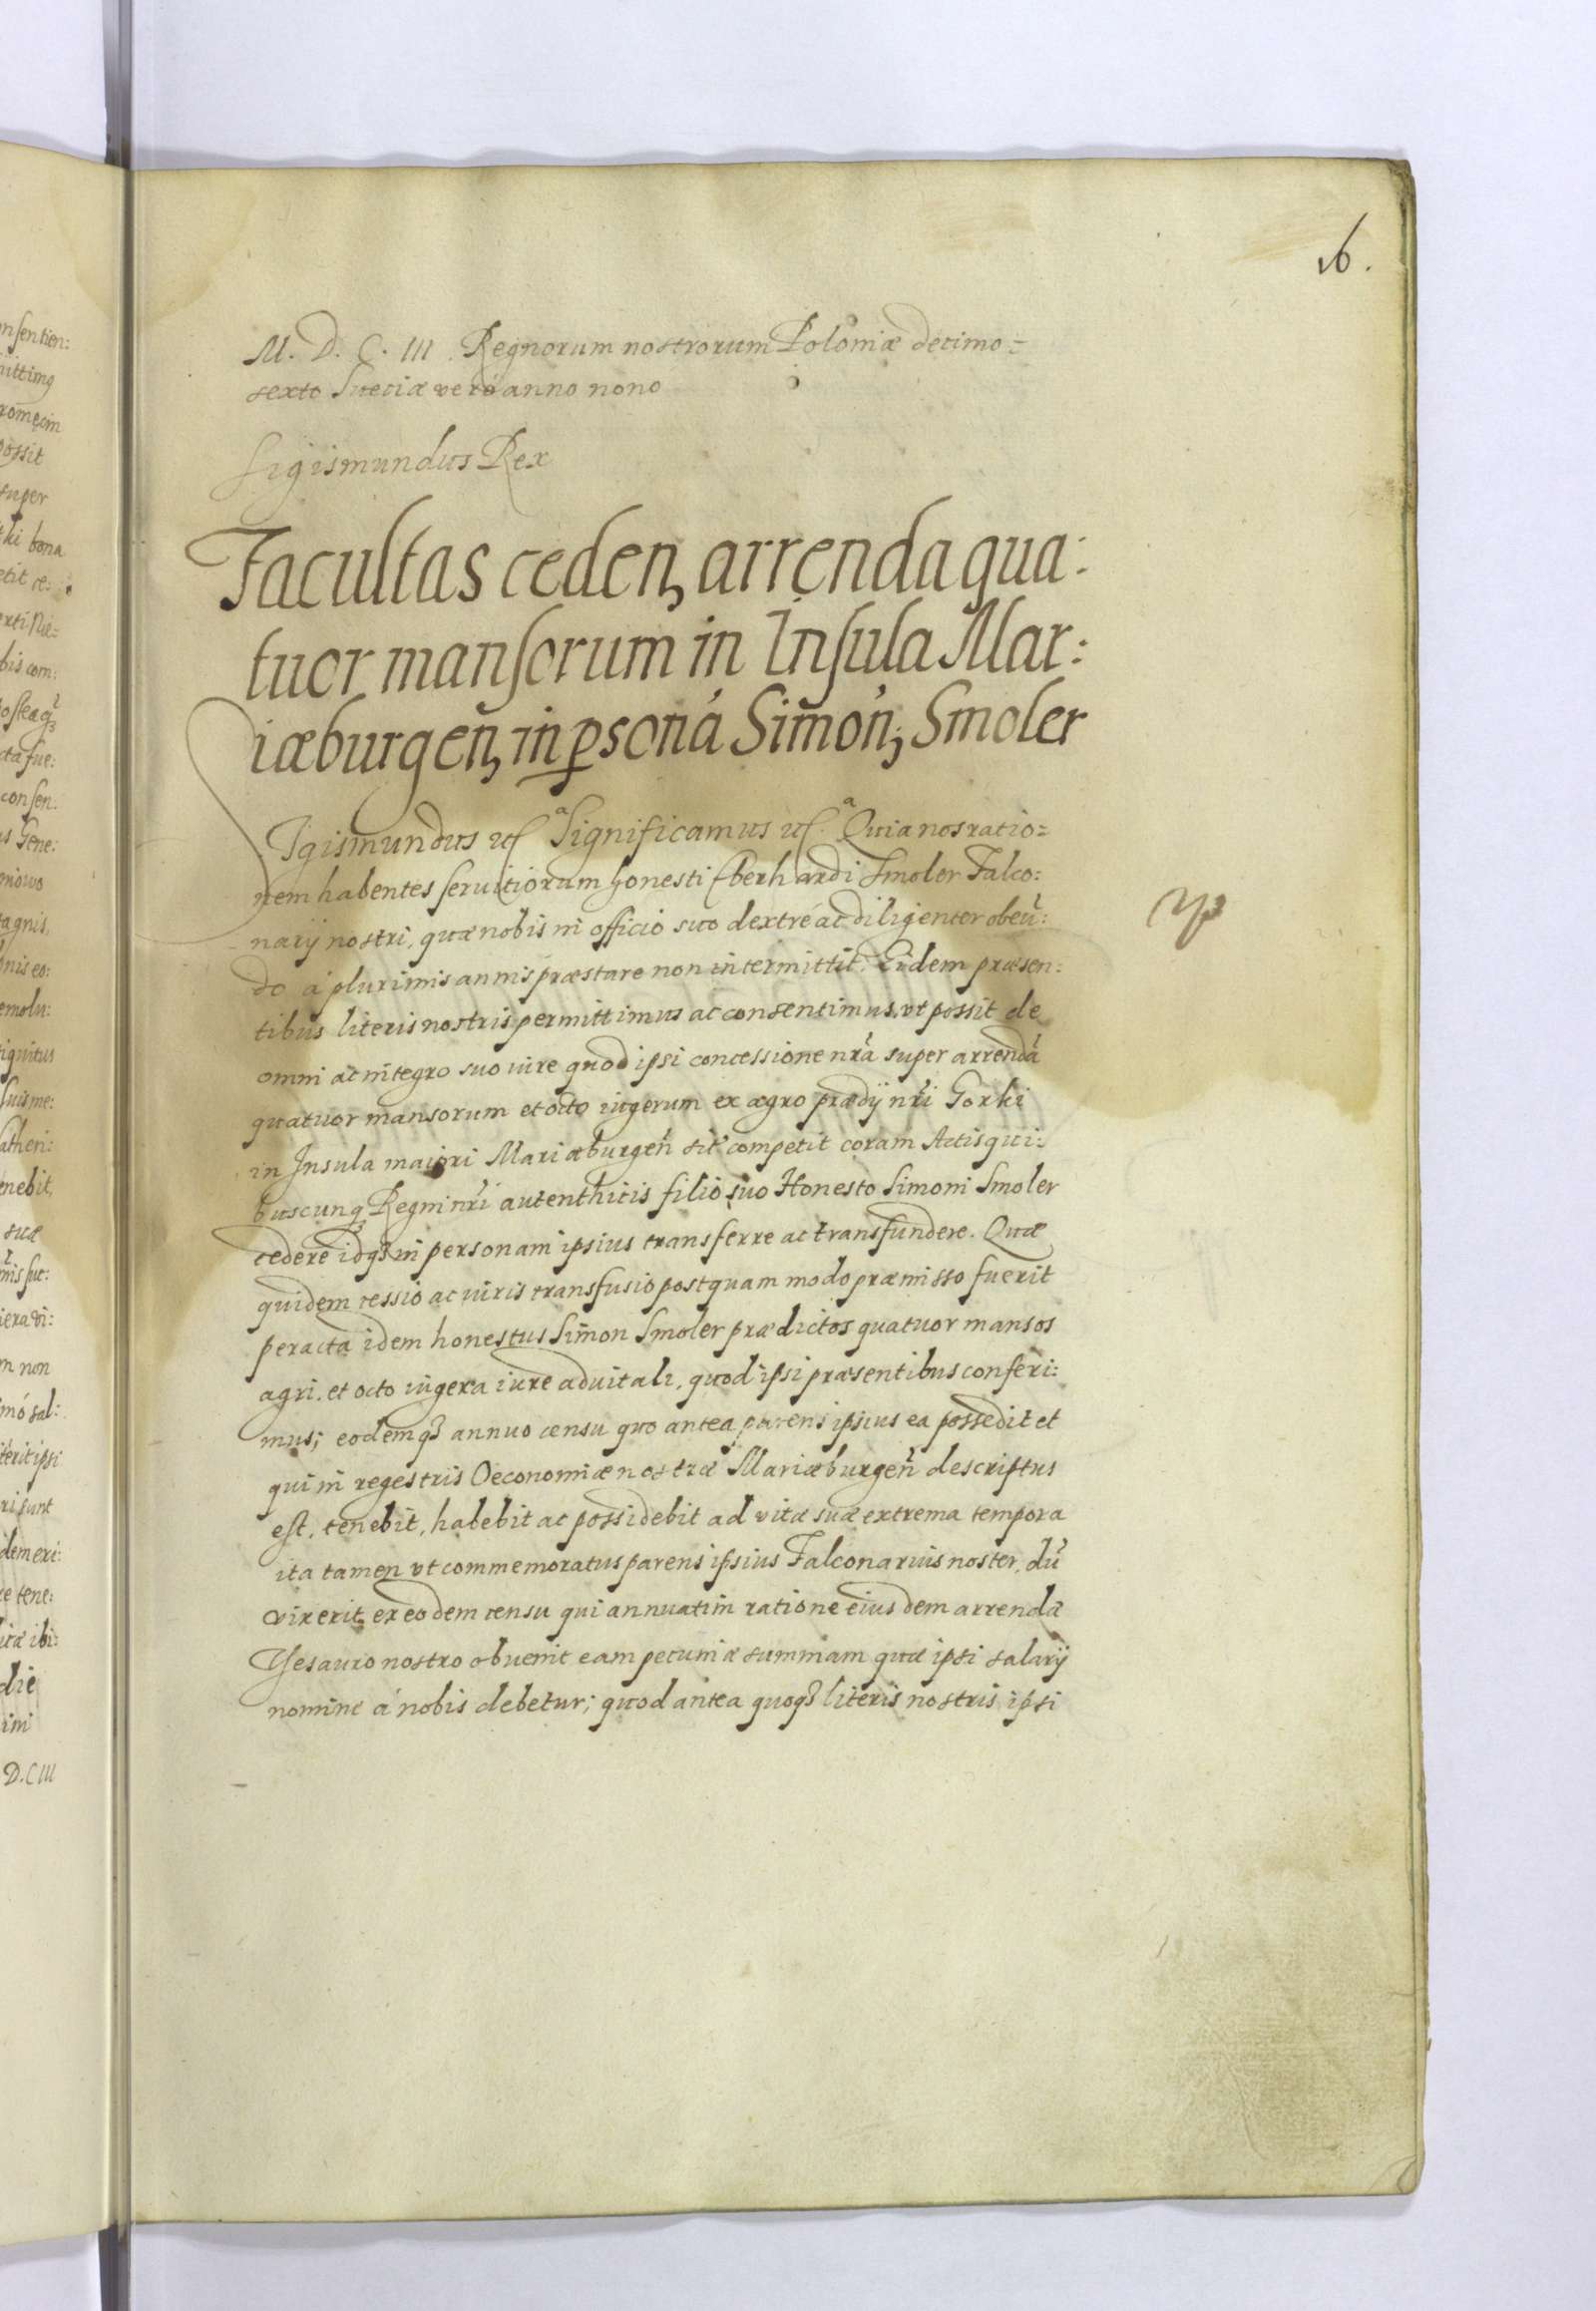 16.
M. D. C. III. Regnorum nostrorum Poloniæ decimo=
sexto Sueciæ veró anno nono
Sigismundus Rex
Facultas ceden, arrenda qua:
tuor mansorum in Insula Mar:
iæburgen, in psoná Simon, Smoler
Sigismundus Significamus Quia nos ratio=
nem habentes seruitiorum honesti Eberhardi Smoler Falco:
narij nostri, quæ nobis in officio suo dextré ac diligenter obeū:
do á plurimis annis præstare non intermittit. Eidem præsen:
tibus literis nostris permittimus ac consentimus, vt possit de
omni ac integro suo iure quod ipsi concessione nrā super arrendā
quatuor mansorum et octo iugerum ex agro prædij nrī Gorki
in Insula maiori Mariæburgen̄ sit competit coram Actis qui:
buscunq Regni nrī autenthicis filio suo Honesto Simoni Smoler
cedere idq in personam ipsius transferre ac transfundere. Quæ
quidem cessio ac iuris transfusio postquam modo præmisso fuerit
peracta idem honestus Simon Smoler prædictos quatuor mansos
agri, et octo iugera iure aduitali, quod ipsi præsentibus conferi:
mus; eodemq annuo censu quo antea parens ipsius ea possedit et
qui in regestris Oeconomiæ nostræ Mariæburgen̄ descriptus
est, tenebit, habebit ac possidebit ad vitæ suæ extrema tempora
ita tamen vt commemoratus parens ipsius Falconarius noster, dū
vixerit ex eodem censu qui annuatim ratione eiusdem arrendæ
Thesauro nostro obuenit eam pecuniæ summam quæ ipsi salarij
nomine á nobis debetur; quod antea quoq literis nostris ipsi